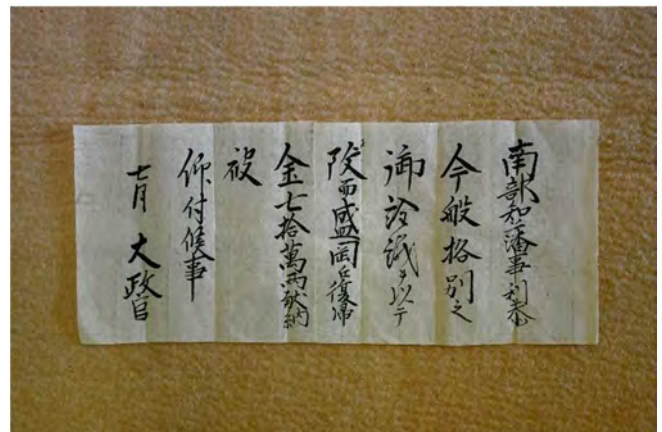 南部藩事利恭
今般格別之
御詮議ヲ以テ
而盛岡江復帰
金七拾萬両献納
被
仰付候事
七月 大政官